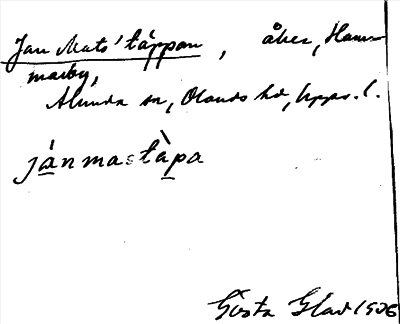 Jan Mats' täppan, åker, Ham-
marby,
Alunda sn, Olands hd, Upps. l.
jànmastàpa
Gösta Glad 1906